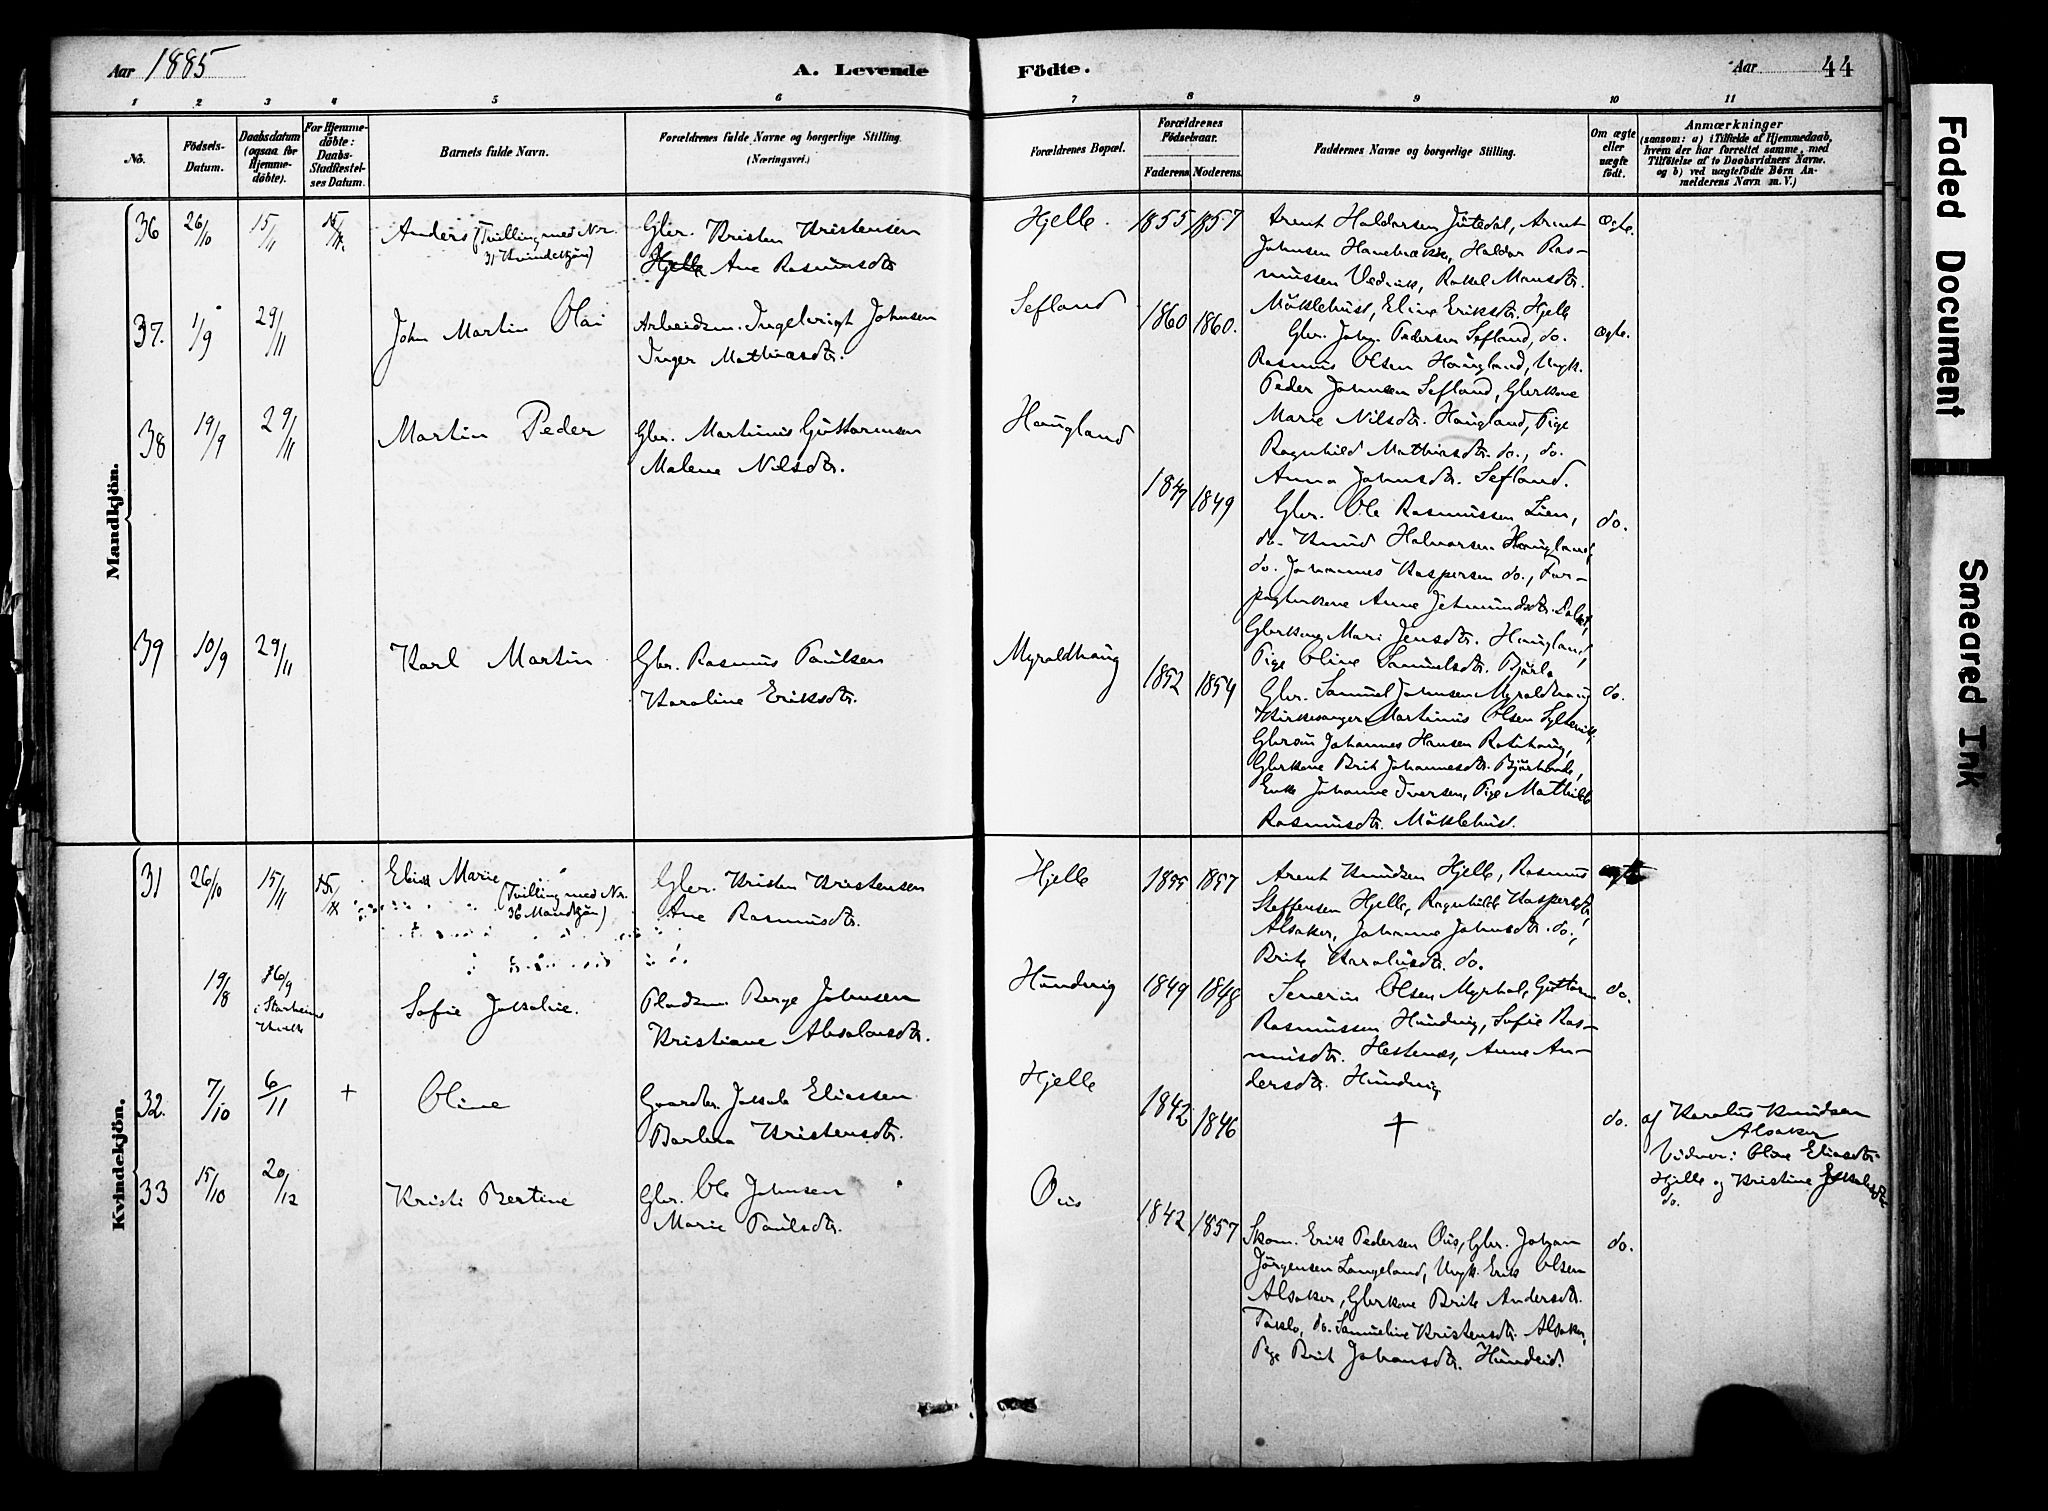 Aar 1885
A. Levende
Födte.
Aar
44
1 2 3 4 5 6 7 8 9 10 11
Nö.
Födsels-
Datum.
Daabsdatum
(ogsaa for
Hjemme-
döbte).
For Hjemme-
döbte:
Daabs-
Stadfæstel-
ses Datum.
Barnets fulde Navn.
Forældrenes fulde Navne og borgerlige Stilling.
(Næringsvei.)
Forældrenes Bopæl.
Forældrenes
Födselsaar.
Faderens. Moderens.
Faddernes Navne og borgerlige Stilling.
Om ægte
eller
uægte
födt.
Anmærkninger
(saasom: a) i Tilfælde af Hjemmedaab,
hvem der har forrettet samme, med
Tilföielse af to Daabsvidners Navne.
og b) ved uægtefödte Börn An-
melderens Navn m. V.)
Mandkjön.
36 26/10 15/11 15/11
Anders (Tvilling med Nr.
31 Kvindekjön)
Gbr. Kristen Kristensen
Hjelle Ane Rasmusdtr
Hjelle. 1855 1857
Arent Haldorsen Jütedal, Arent
Johnsen Hanebrække, Haldor Ras-
mussen Vedvik, Rakel Monsdtr.
Möklebust, Eline Eriksdtr. Hjelle
ægte.
37. 1/9 29/11
John Martin Olai
Arbeidsm. Ingebrigt Johnsen
Inger Mathiasdtr.
Sefland 1860 1860.
Gbr. John Pedersen Sefland, do.
Rasmus Olsen Haugland, Ungk.
Peder Johnsen Sefland, Gbrkone
Marie Nilsdtr. Haugland, Pige
Ragnhild Mathiasdtr. do., do.
Anna Johnsdtr. Sefland.
ægte.
38 19/9 29/11
Martin Peder
Gbr. Martinus Guttormsen
Malene Nilsdtr.
Haugland 1847 1849
Gbr. Ole Rasmussen Lien,
do. Knud Halvorsen Haugland,
do. Johannes Kaspersen do., For-
pagterkone Anne Jetmundsdtr.
Gbrkone Mari Jensdtr. Haugland,
Pige Oline Samuelsdtr.
do.
39 10/9 29/11
Karl Martin
Gbr. Rasmus Paulsen
Karoline Eriksdtr.
Myroldhaug 1852 1854
Gbr. Samuel Johnsen Myroldhaug
Kirkesanger Martinus Olsen
Gbrsøn Johannes Hansen
Gbrkone Brit Johannesdtr.
Enke Johanne Iversen, Pige Mathilde
Rasmusdtr. Möklebust.
do.
Kvindekjön.
31 26/10 15/11 15/11
Elise Marie
(Tvilling med Nr.
36 Mandkjön)
Gbr. Kristen Kristensen
Ane Rasmusdtr.
Hjelle 1855 1857
Arent Knudsen Hjelle, Rasmus
Steffensen Hjelle, Ragnhilde Kaspersdtr,
Alsaker, Johanne Johnsdtr. do.,
Brite Karolusdtr. do.
ægte
19/8 26/9
i Starheims
Kirke
Sofie Jakobine.
Pladsm. Berge Johnsen
Kristiane Absalonsdtr.
Hundvig 1849 1848
Severin Olsen Myrhol, Guttorm
Rasmussen Hundvig, Sofie Ras-
musdtr. Hestenæs, Anne An-
dersdtr. Hundvig
do.
32. 7/10 6/11 +
Oline
Gaardbr. Jakob Eliassen
Barbra Kristensdtr.
Hjelle 1842 1846
+
do.
af Karolus Knudsen
Alsaker
Vidner: Oline Eliasdtr
Hjelle og Kristine Jakobsdtr
do.
33 15/10 20/12
Kristi Bertine
Gbr. Ole Johnsen
Marie Paulsdtr.
Ous 1842 1857
Skom. Erik Pedersen Ous, Gbr. Johan
Jörgensen Langeland, Ungk. Erik Olsen
Alsaker, Gbrkone Brite Andersdtr.
Taklo, do. Samueline Kristensdtr. Alsaker,
Pige Brit Johansdtr. Hundeid.
do.
Faded Document
Smeared Ink